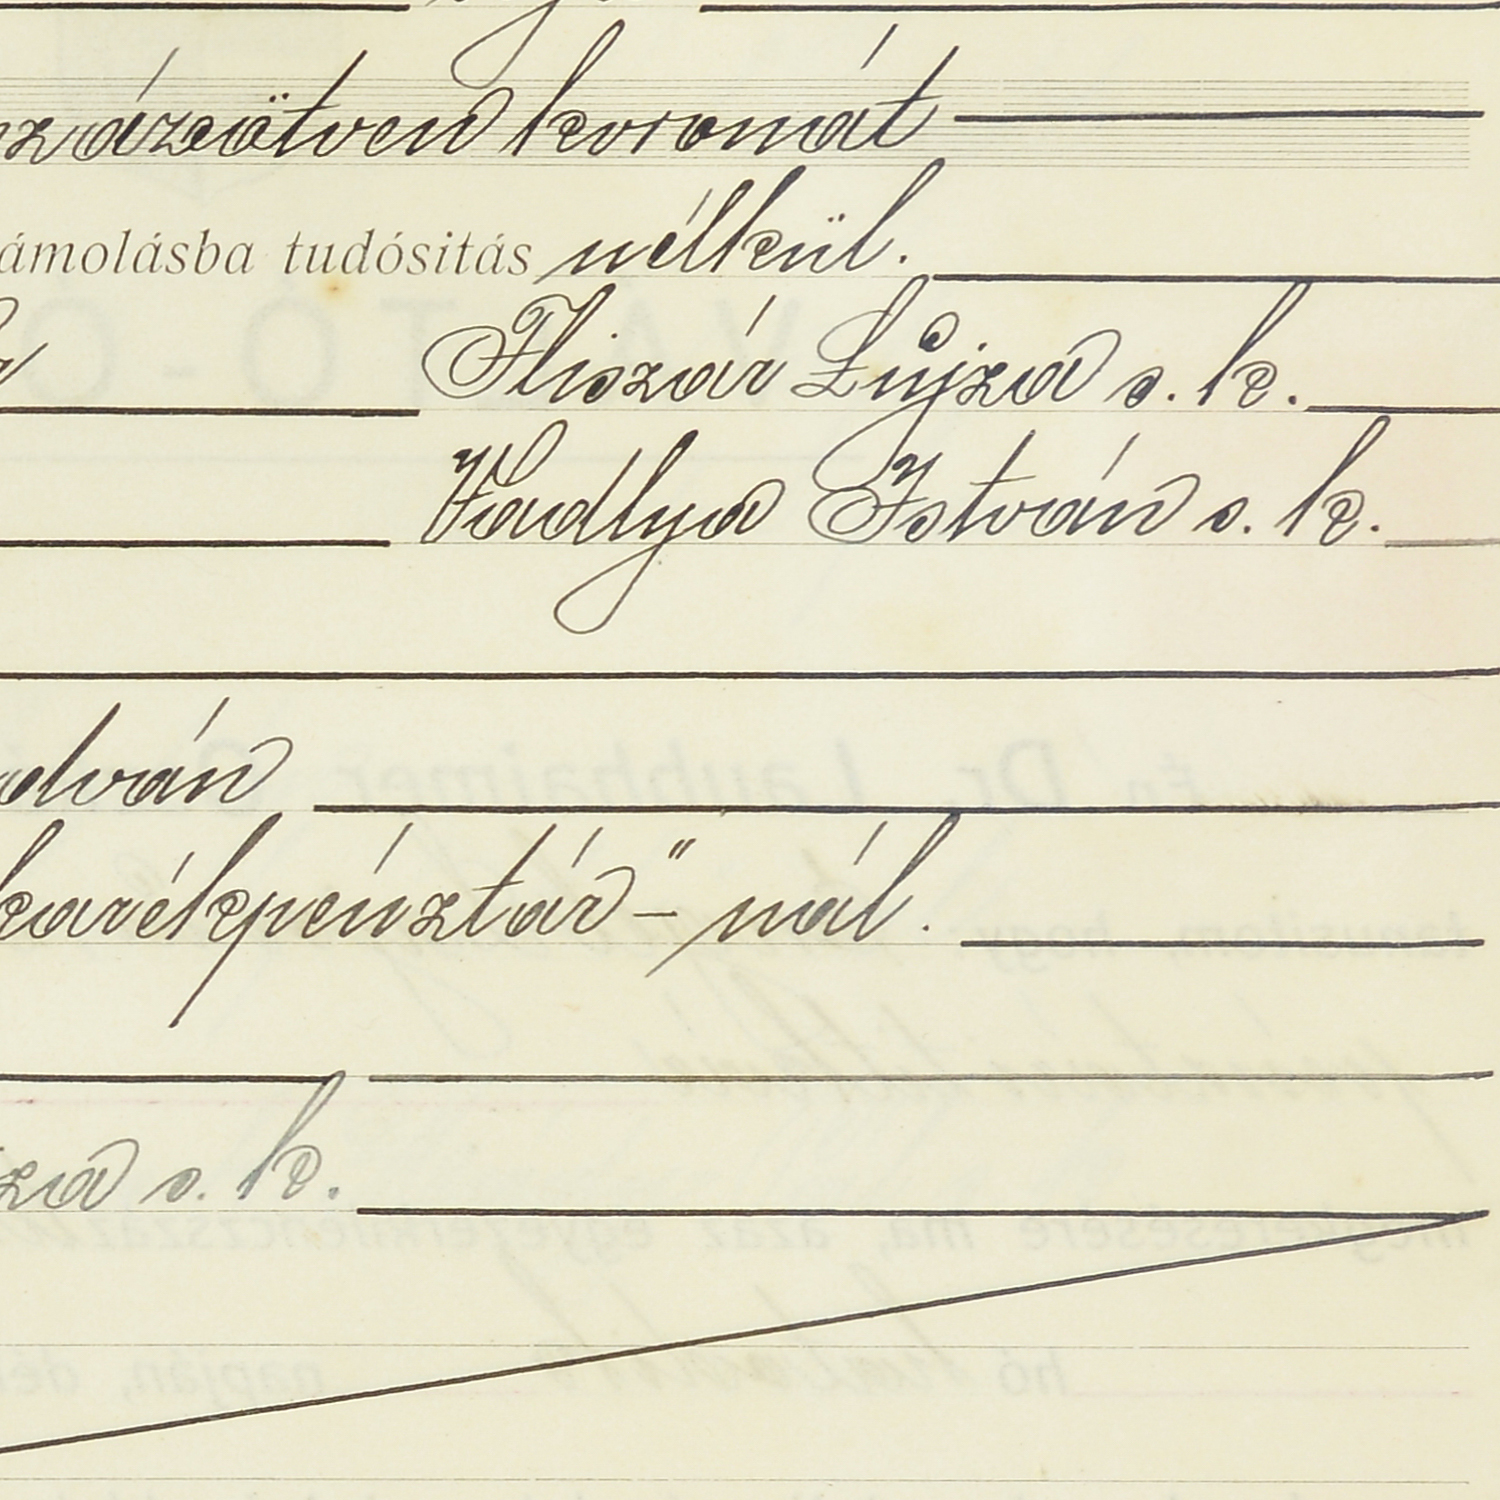 százötven koronát
ámolásba tudósitás nélkül.
Fliszár Lujza s. k.
Vadlya István s. k.
dván
karékpénztár"-nál.
za s. k.